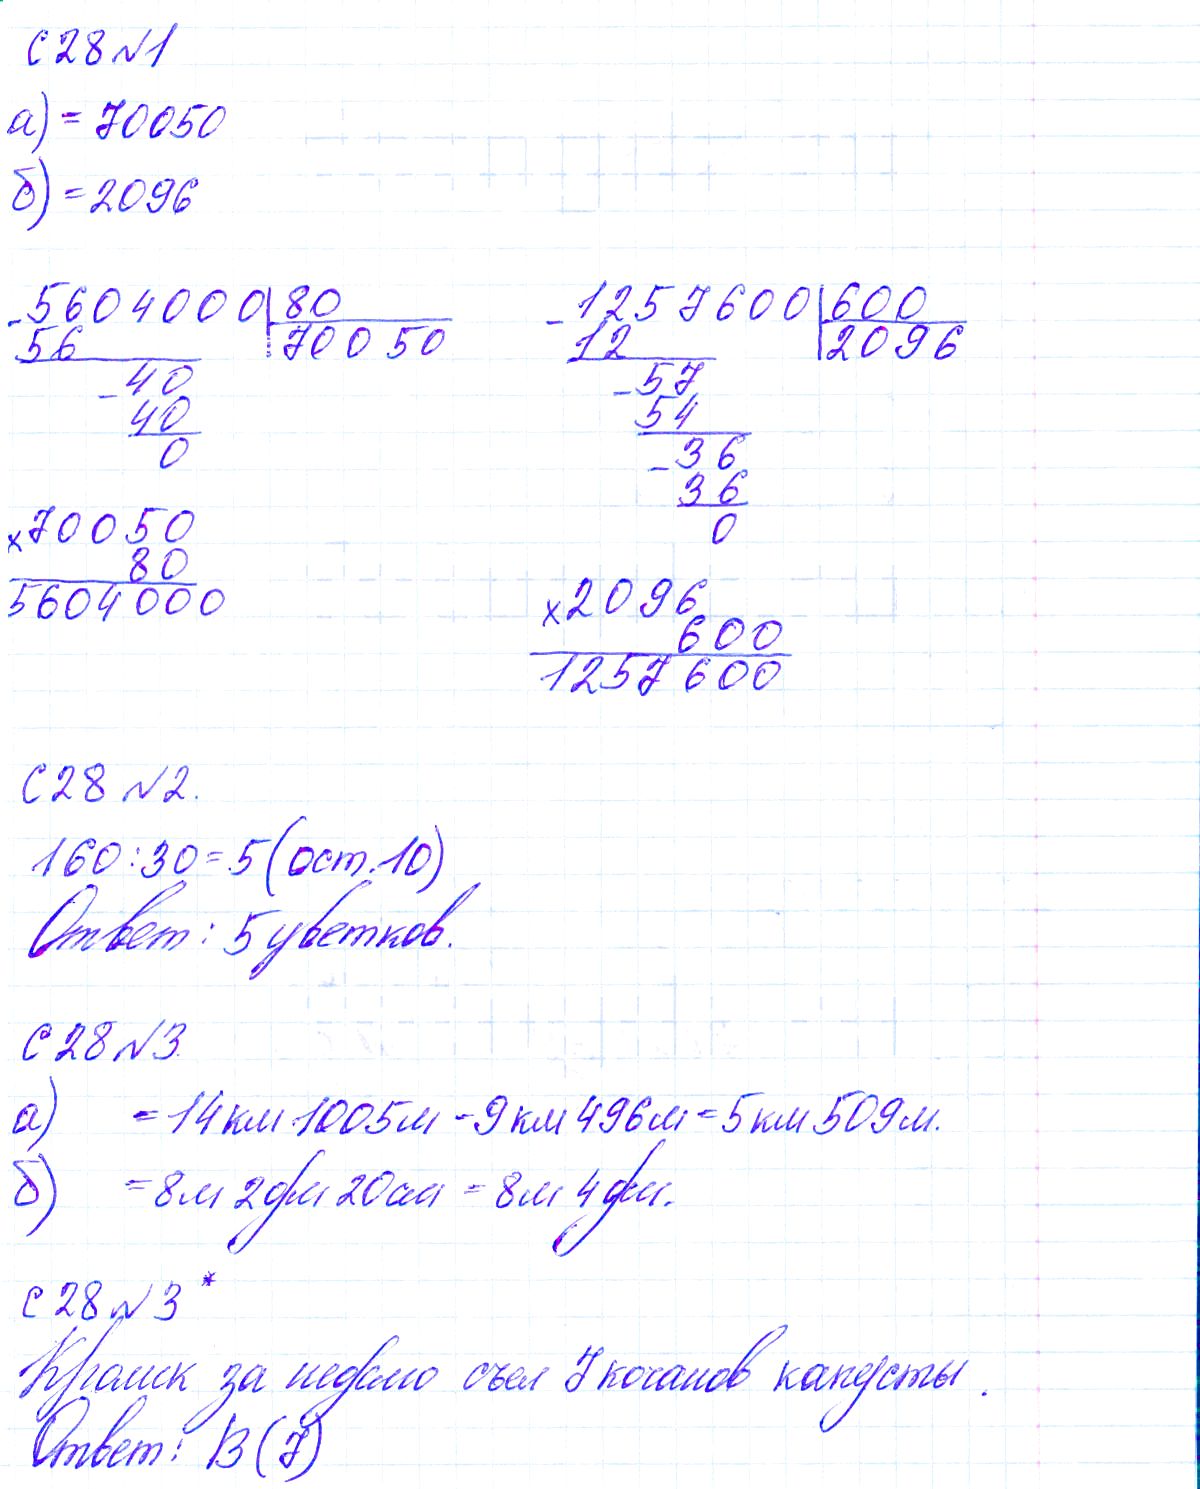 С 28 №1
а) = 70050
б) = 2096
- 5604000 | 80
56 | 70050
- 40
40
0
× 70050
80
5604000
- 1257600 | 600
12 | 2096
- 57
54
- 36
36
0
× 2096
600
1257600
С 28 №2.
160 : 30 = 5 (ост. 10)
Ответ: 5 цветков.
С 28 №3
а) = 14 км 1005 м - 9 км 496 м = 5 км 509 м.
б) = 8 м 2 дм 20 см = 8 м 4 дм.
С 28 №3*
Кролик за неделю съел 7 кочанов капусты.
Ответ: В (7)